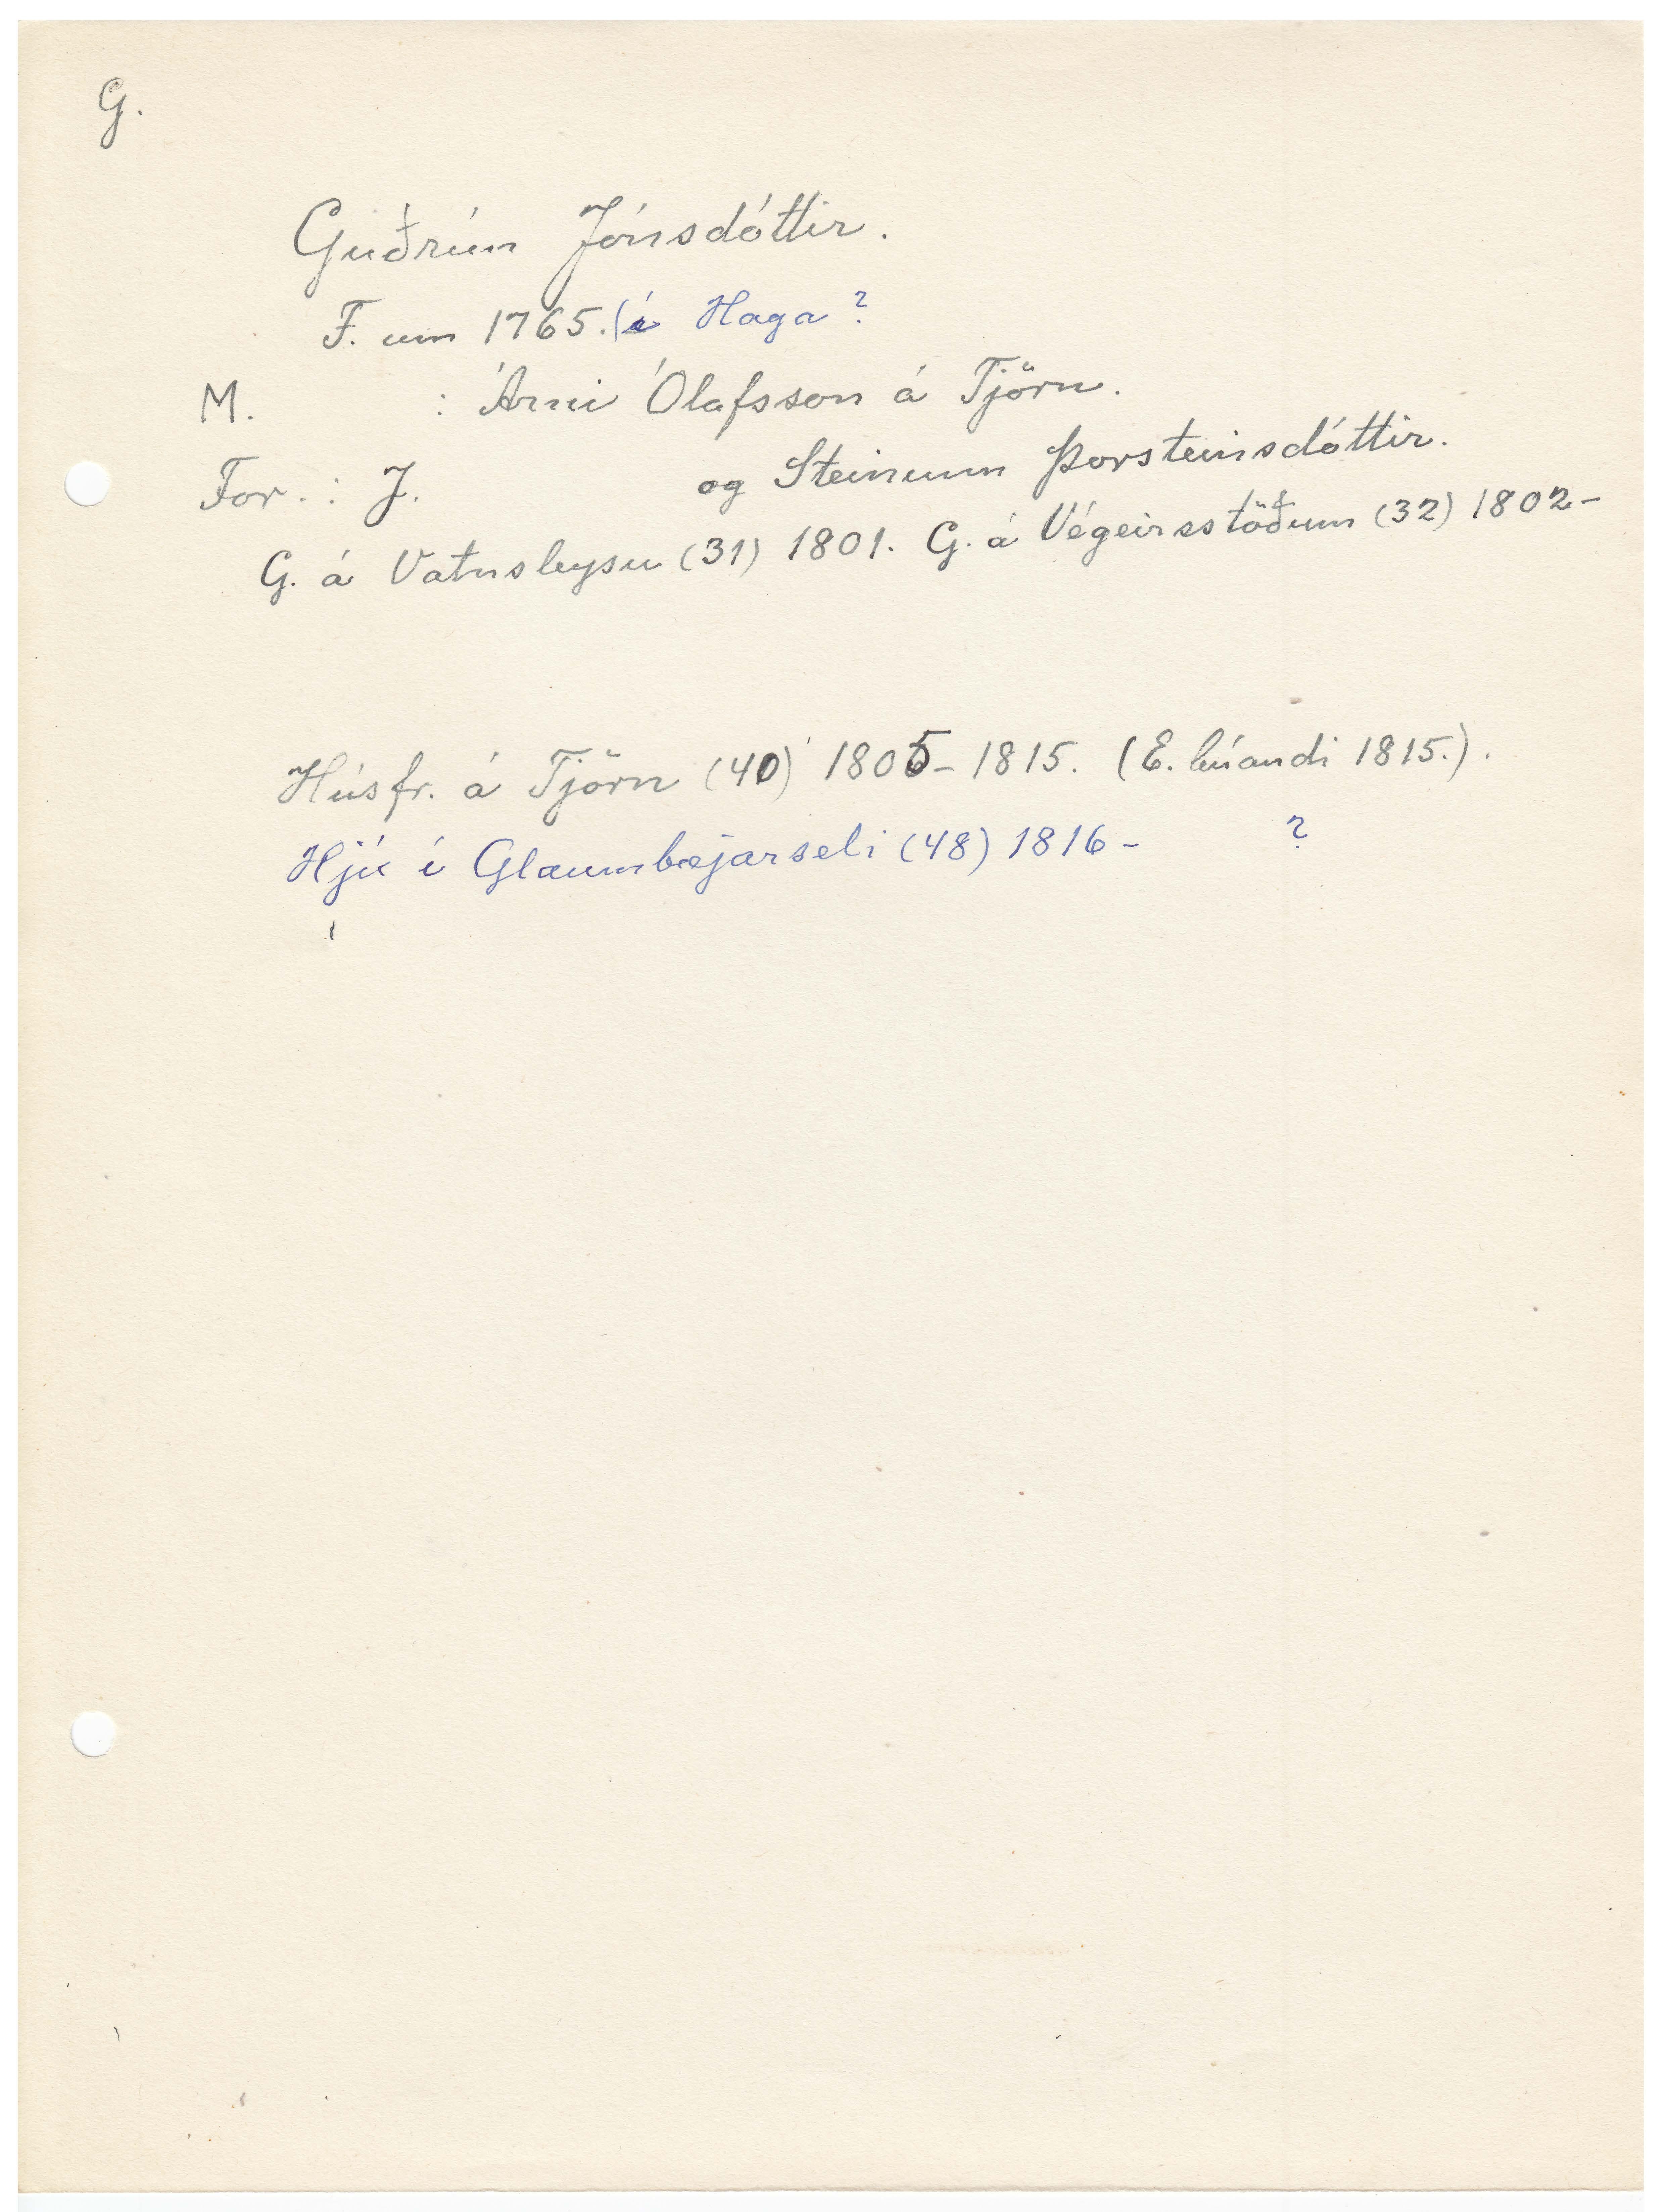 G.
Guðrún Jónsdóttir.
F. um 1765. (í Haga?
M. : Árni Ólafsson á Tjörn.
For. : J. og Steinunn Þorsteinsdóttir.
G. á Vatnsleysu (31) 1801. G. á Végeirsstöðum (32) 1802-
Húsfr. á Tjörn (40) 1805-1815. (E. búandi 1815.).
Hjú í Glaumbæjarseli (48) 1816- ?